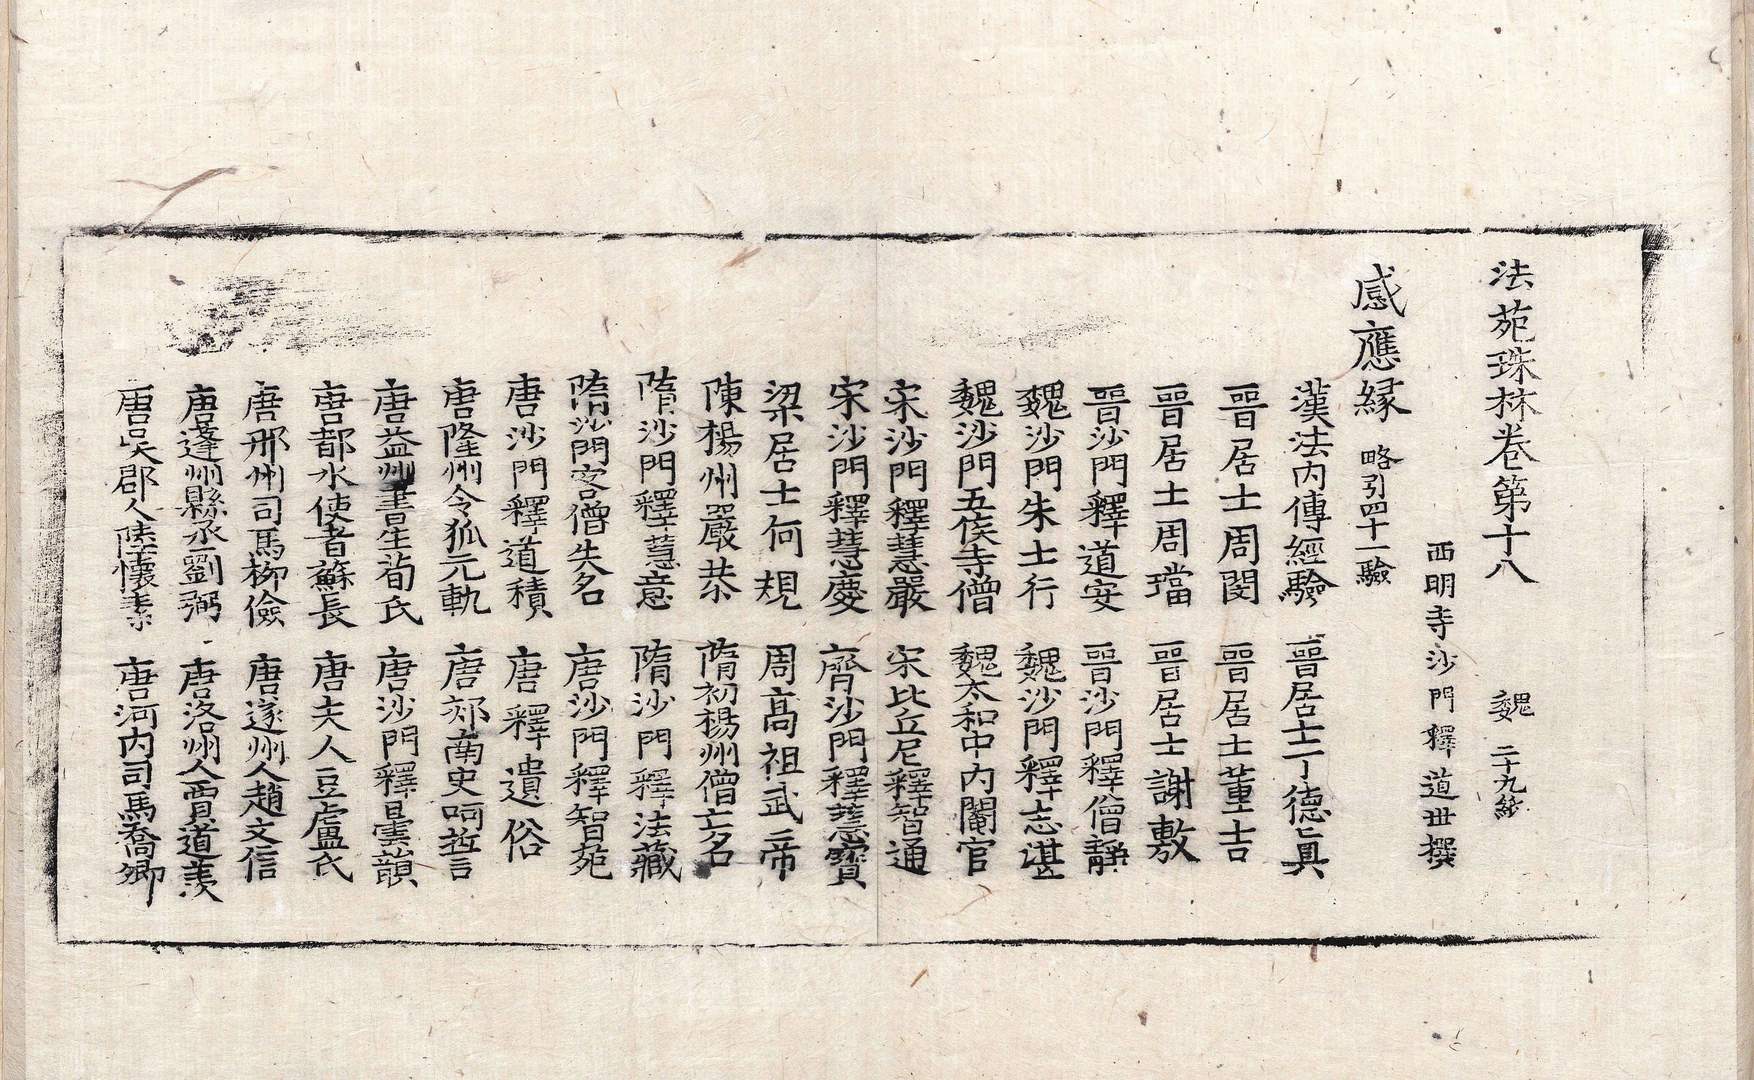 法苑珠林卷第十八 魏 二十九紙
西明寺沙門釋道世撰
感應縁 略引四十一驗
漢法内傳經驗 晉居士丁德眞
晉居士周閔 晉居士董吉
晉居士周璫 晉居士謝敷
晉沙門釋道安 晉沙門釋僧靜
魏沙門朱士行 魏沙門釋志湛
魏沙門五侯寺僧 魏太和中内閹官
宋沙門釋慧嚴 宋比丘尼釋智通
宋沙門釋慧慶 齊沙門釋慧寶
梁居士何規 周高祖武帝
陳楊州嚴恭 隋初楊州僧亡名
隋沙門釋慧意 隋沙門釋法藏
隋沙門客僧失名 唐沙門釋智苑
唐沙門釋道積 唐釋遺俗
唐隆州令狐元軌 唐郊南史呵誓
唐益州書生荀氏 唐沙門釋曇韻
唐都水使者蘇長 唐夫人豆盧氏
唐邢州司馬柳儉 唐遂州人趙文信
唐蓬州縣丞劉弼 唐洛州人賈道羨
唐吳郡人陸懷素 唐河内司馬喬卿